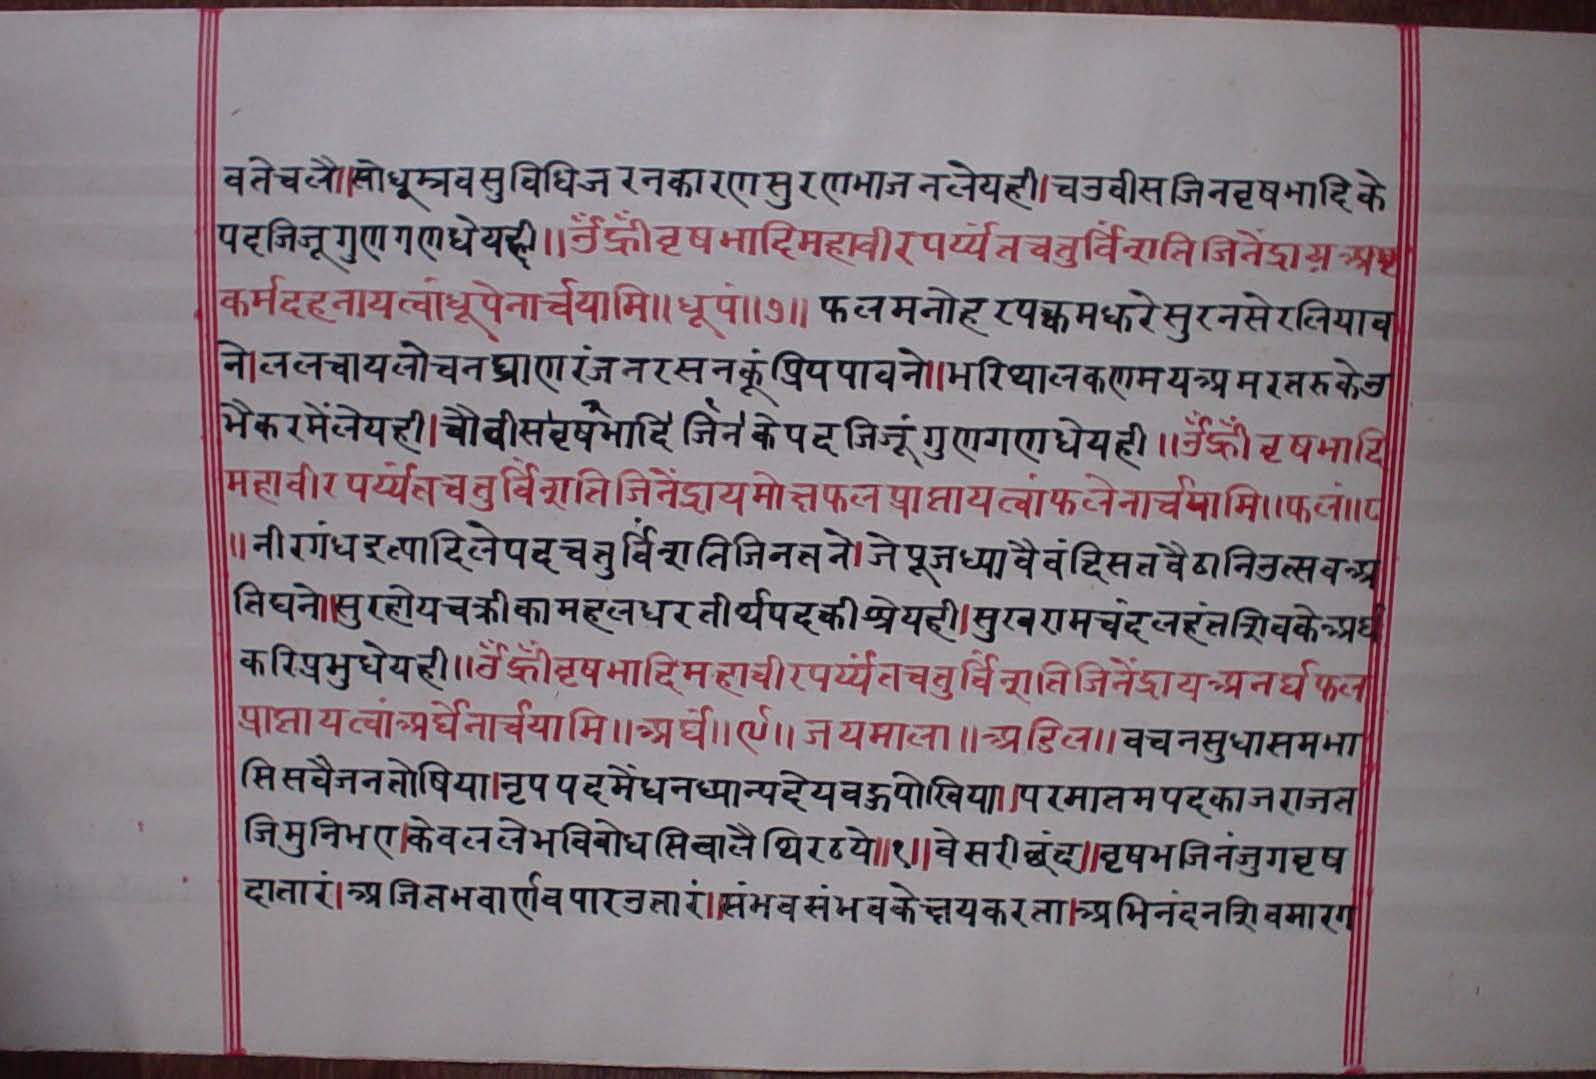 वतेचलै॥सोधूम्रवसुविधिजरनकारणसुरणभाजनलेयही।चउवीसजिनवृषभादिके
पदजिजूगुणगणधेयही॥ॐह्रीँवृषभादिमहावीरपर्य्यंतचतुर्विंशतिजिनेंद्रायअष्ट
कर्मदहनायत्वांधूपेनार्चयामि॥धूपं॥७॥ फलमनोहरपक्कमधरेसुरनसेरलियाव
ने।ललचायलोचनघ्राणरंजनरसनकूंप्रियपावने॥भरिथालकणमयअमरतरुकेउ
भैकरमेंलेयही।चौवीसवृषभादिजिनकेपदजिजूंगुणगणधेयही॥ॐह्रीँवृषभादि
महावीरपर्य्यंतचतुर्विंशतिजिनेंद्रायमोक्षफलप्राप्तायत्वांफलेनार्चयामि॥फलं॥८
॥नीरगंधइत्यादिलेपदचतुर्विंशतिजिनतने।जेपूजध्यावैवंदिसतवैठानिउत्सवअ
तिघने॥सुरहोयचक्रीकामहलधरतीर्थपदकीश्रेयही।सुखरामचंदलहंतशिवकेअर्घ
करिप्रभुधेयही॥ॐह्रीँवृषभादिमहावीरपर्य्यंतचतुर्विंशतिजिनेंद्रायअनर्घफल
प्राप्तायत्वांअर्घेनार्चयामि॥अर्घं॥९॥जयमाला॥अडिल॥वचनसुधासमभा
सिसवैजनतोषिया।नृपपदमैंधनध्यान्यदेयवहुपोखिया।परमातमपदकाजराजत
जिमुनिभए।केवललेभविबोधसिवालैथिरठये॥१॥वेसरीछंद॥वृषभजिनंजुगवृष
दातारं।अजितभवार्णवपारउतारं॥संभवसंभवकेक्षयकरता।अभिनंदनशिवमारग